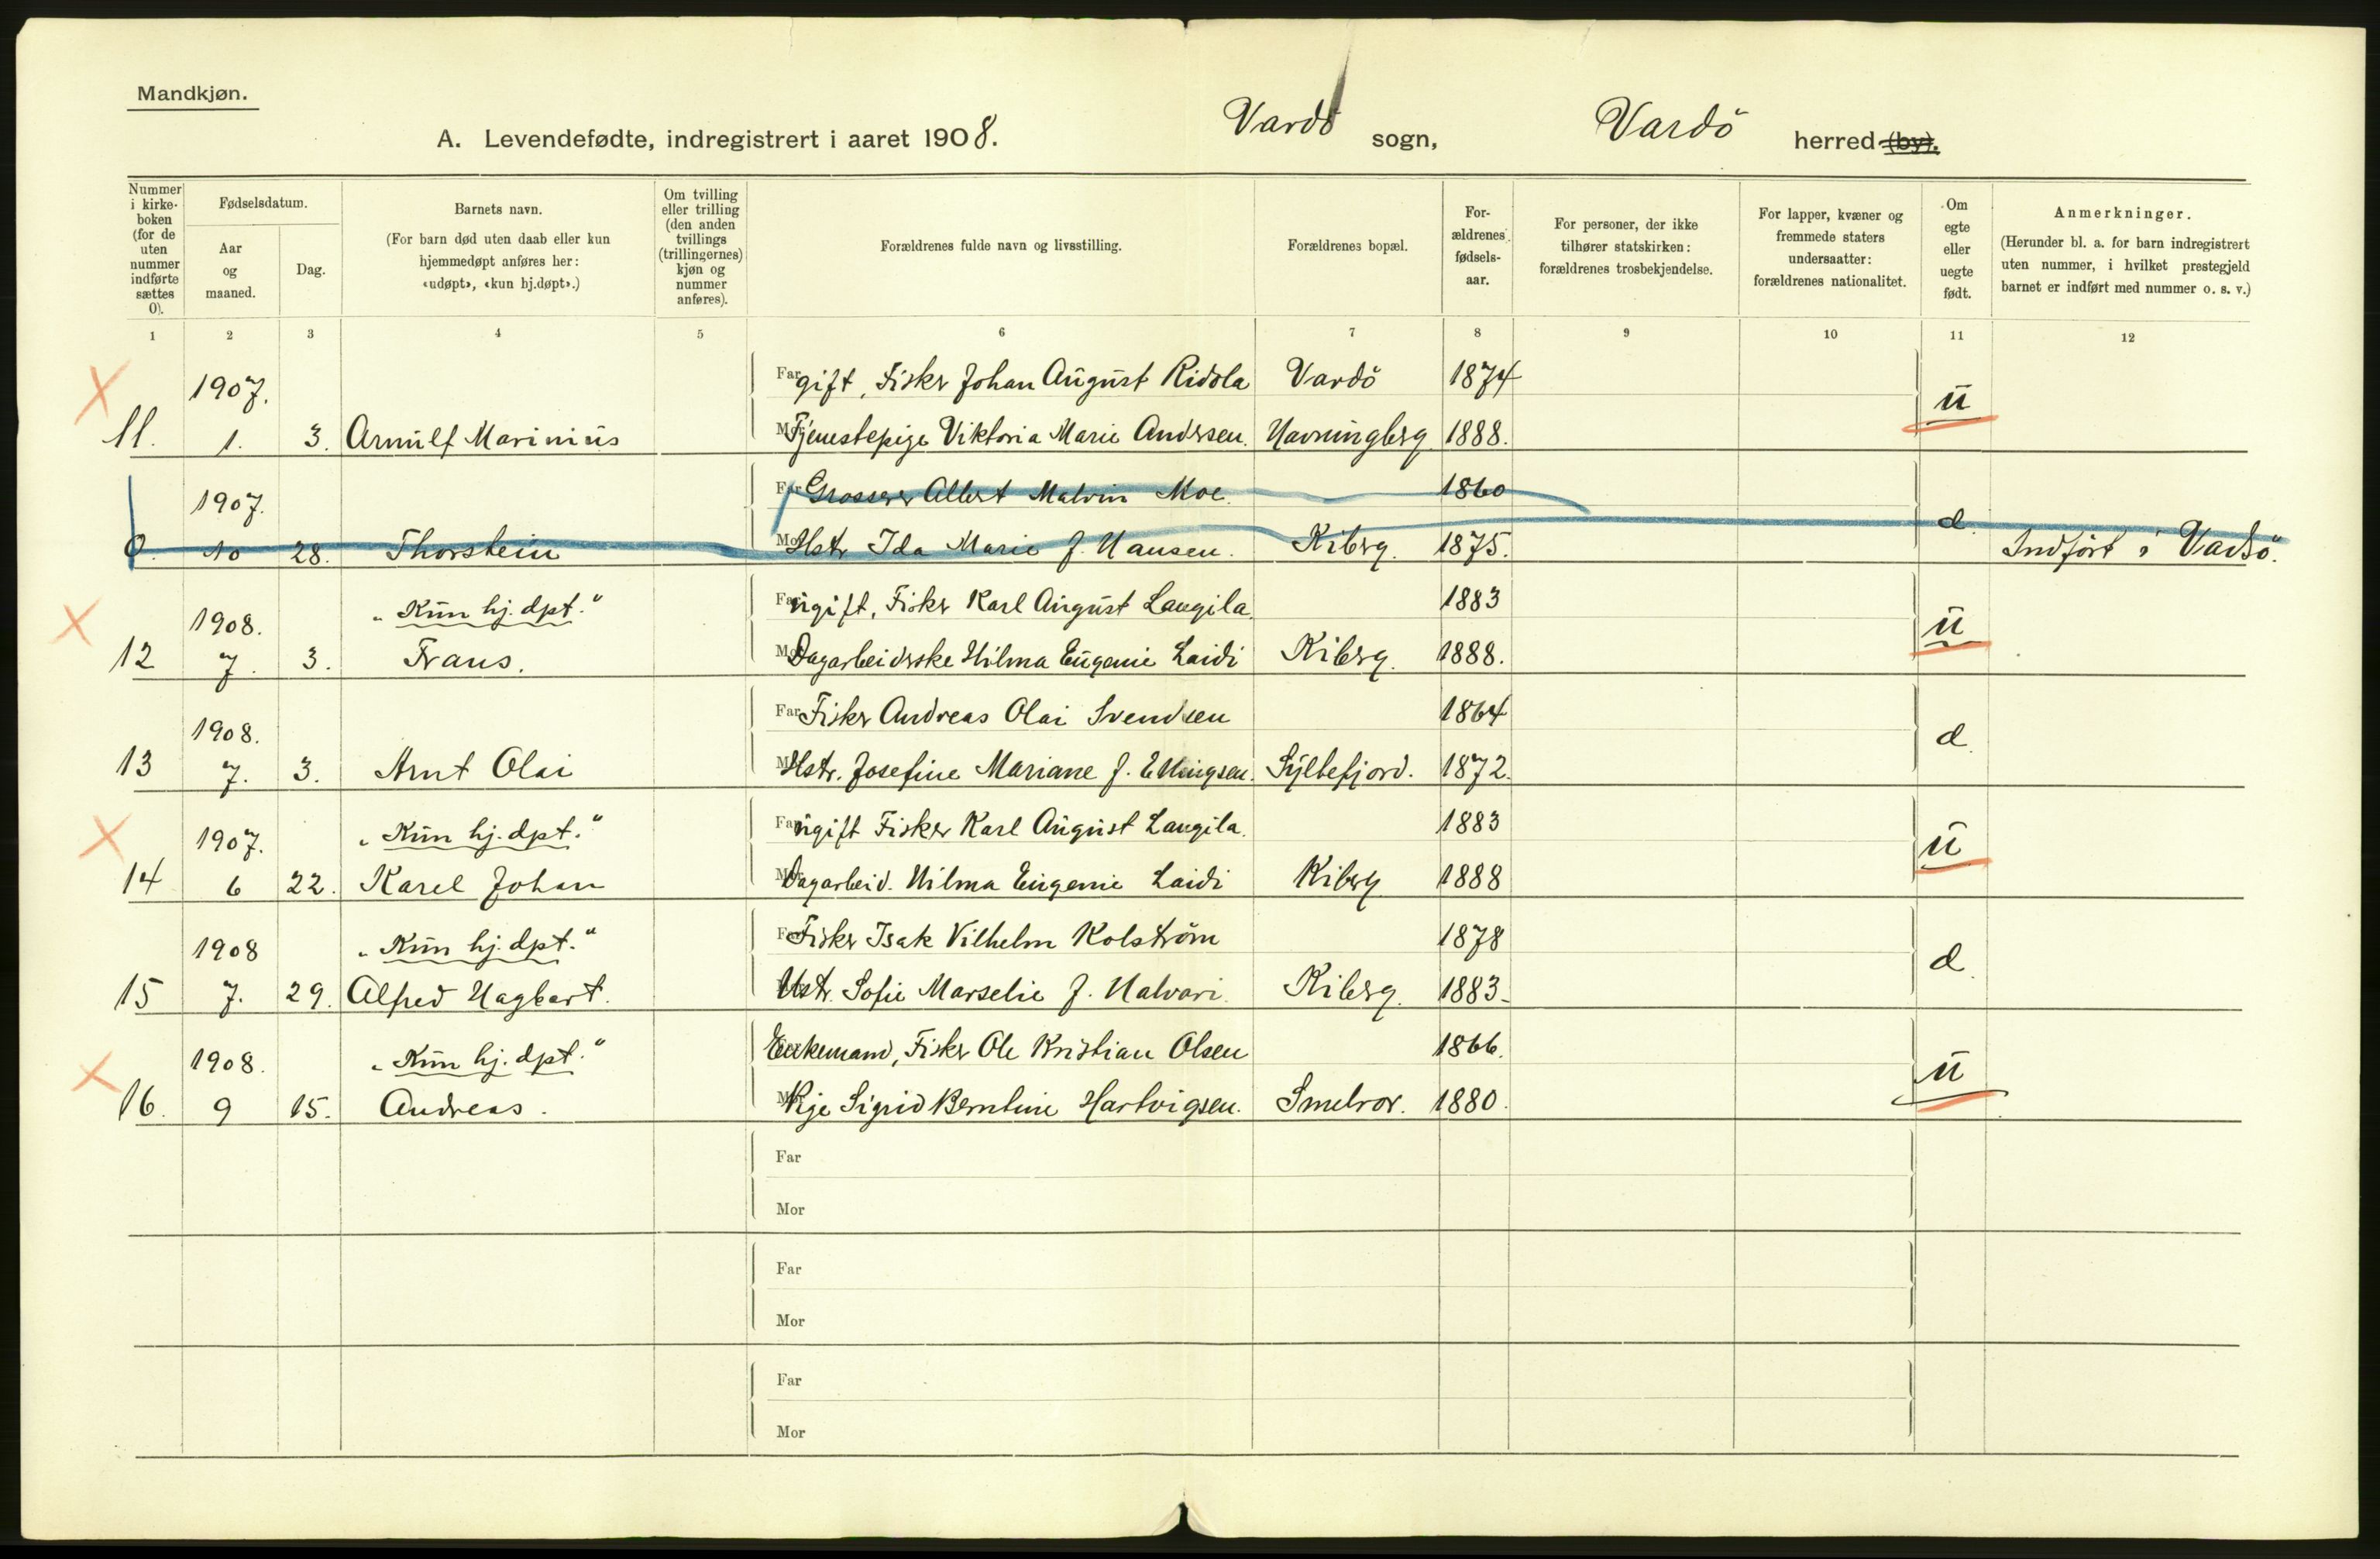 Mandkjøn.
A. Levendefødte, indregistrert i aaret 1908. Vardö sogn, Vardö herred (by).
Nummer i kirke-boken (for de uten nummer indførte sættes 0).
Fødselsdatum.
Aar og maaned.
Dag.
Barnets navn.
(For barn død uten daab eller kun hjemmedøpt anføres her: «udøpt», «kun hj.døpt».)
Om tvilling eller trilling (den anden tvillings (trillingernes) kjøn og nummer anføres).
Forældrenes fulde navn og livsstilling.
Forældrenes bopæl.
For-ældrenes fødsels-aar.
For personer, der ikke tilhører statskirken: forældrenes trosbekjendelse.
For lapper, kvæner og fremmede staters undersaatter: forældrenes nationalitet.
Om egte eller uegte født.
Anmerkninger.
(Herunder bl. a. for barn indregistrert uten nummer, i hvilket prestegjeld barnet er indført med nummer o. s. v.)
1 2 3 4 5 6 7 8 9 10 11 12
1907. Far gift, Fisker Johan August Ridola Vardö 1874 u
11. 1. 3. Arnulf Marinius Mor Tjenestepige Viktoria Marie Andersen. Havningberg 1888.
1907. Far Grosserer Albert Malvin Moe. 1860 d.
0. 10 28. Thorstein Mor Hstr Ida Marie f. Hansen. Kiberg. 1875. Indført i Vadsö.
1908. „Kun hj. dpt.“ Far ugift, Fisker Karl August Laugila. 1883 u
12 7. 3. Frans. Mor Dagarbeiderske Hilma Eugenie Laidi Kiberg. 1888.
1908. Far Fisker Andreas Olai Svendsen 1864 d.
13 7. 3. Arnt Olai Mor Hstr. Josefine Mariane f. Ellingsen. Syltefjord. 1872.
1907. „Kun hj. dpt.“ Far ugift Fisker Karl August Laugila. 1883 u
14 6 22. Karel Johan Mor Dagarbeid. Hilma Eugenie Laidi Kiberg 1888
1908 „Kun hj. dpt.“ Far Fisker Isak Vilhelm Kolström 1878 d.
15 7. 29. Alfred Hagbart. Hstr. Sofie Marselie f. Halvari. Kiberg. 1883.
1908. „Kun hj. dpt.“ Enkemand, Fisker Ole Kristian Olsen 1866. u
16. 9 15. Andreas. Mor Pige Sigrid Berntine Hartvigsen. Smelror. 1880.
Far
Mor
Far
Mor
Far
Mor